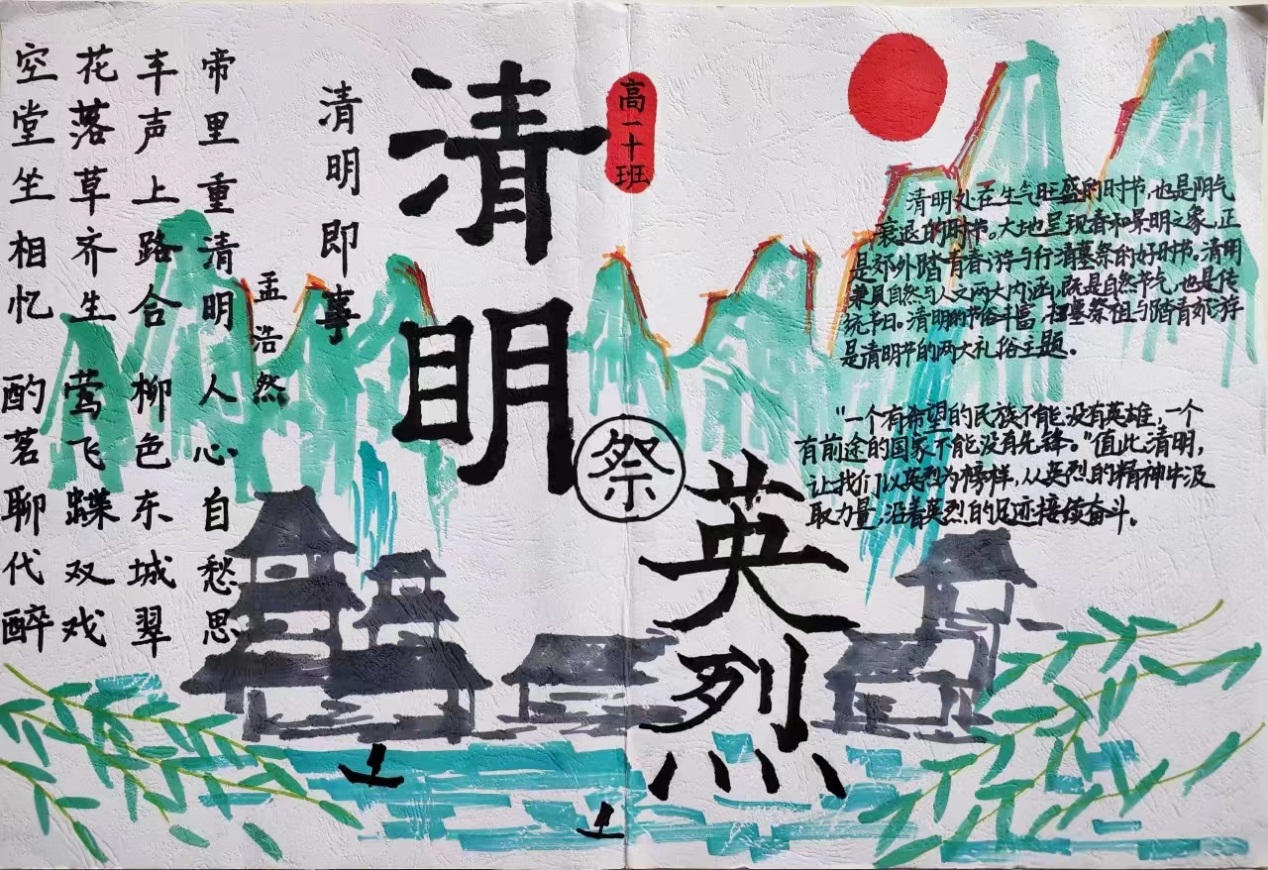 清明
祭
英烈
高一十班
清明即事
孟浩然
帝里重清明 人心自愁思
车声上路合 柳色东城翠
花落草齐生 莺飞蝶双戏
空堂坐相忆 酌茗聊代醉
清明处在生气旺盛的时节,也是阴气
衰退的时节。大地呈现春和景明之象,正
是郊外踏青春游与行清墓祭的好时节。清明
兼具自然与人文两大内涵,既是自然节气,也是传
统节日。清明的节俗丰富,扫墓祭祖与踏青郊游
是清明节的两大礼俗主题。
"一个有希望的民族不能没有英雄,一个
有前途的国家不能没有先锋。"值此清明,
让我们以英烈为榜样,从英烈的精神中汲
取力量,沿着英烈的足迹接续奋斗。